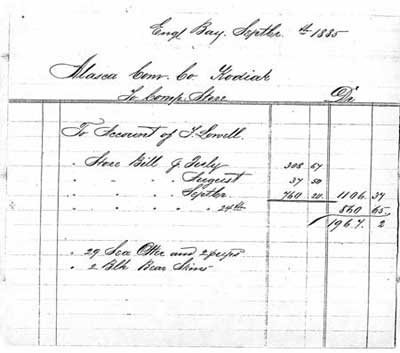 Engl Bay. Septbr. th 1885
Alasca Com. Co Kodiak
To Comp. Store Dr.
To Account of T. Lowell.
" Store Bill of July 308 67
" " " " August 37 50
" " " " Septbr 760 20 1106. 37
" " " " " 24th 860 65
1967. 2
" 29 Sea Otter and 2 pups
" 2 Blk Bear Skins